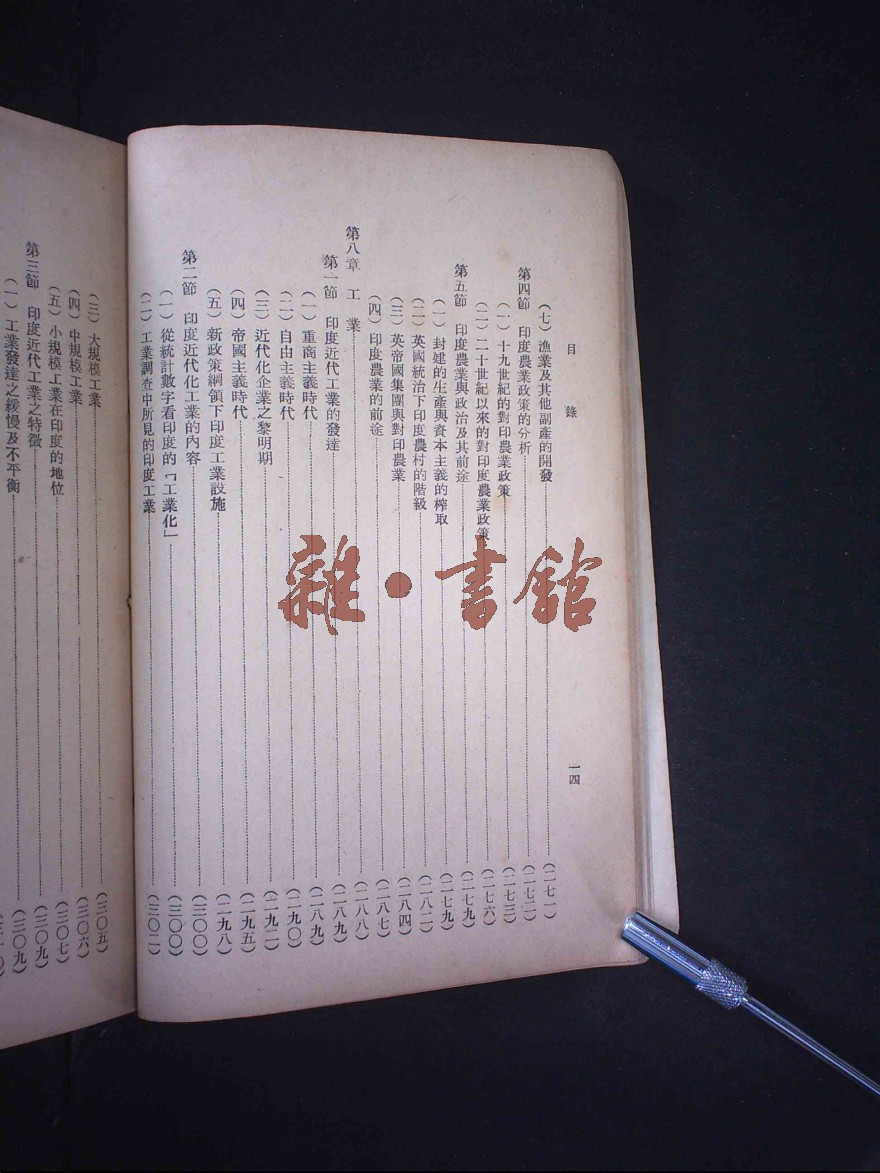 目錄
一四
(七) 漁業及其他副產的開發……(二七一)
第四節 印度農業政策的分析……(二七二)
(一) 十九世紀的對印農業政策……(二七三)
(二) 二十世紀以來的對印度農業政策……(二七六)
第五節 印度農業與政治及其前途……(二七九)
(一) 封建的生產與資本主義的榨取……(二七九)
(二) 英國統治下印度農村的階級……(二八二)
(三) 英帝國集團與對印農業……(二八四)
(四) 印度農業的前途……(二八七)
第八章 工業……(二八八)
第一節 印度近代工業的發達……(二八九)
(一) 重商主義時代……(二八九)
(二) 自由主義時代……(二九〇)
(三) 近代化企業之黎明期……(二九二)
(四) 帝國主義時代……(二九五)
(五) 新政策綱領下印度工業設施……(二九八)
第二節 印度近代化工業的內容……(三〇〇)
(一) 從統計數字看印度的「工業化」……(三〇〇)
(二) 工業調查中所見的印度工業……(三〇二)
(三) 大規模工業……(三〇五)
(四) 中規模工業……(三〇六)
(五) 小規模工業在印度的地位……(三〇七)
第三節 印度近代工業之特徵……(三〇九)
(一) 工業發達之緩慢及不平衡……(三〇九)
雜·書館